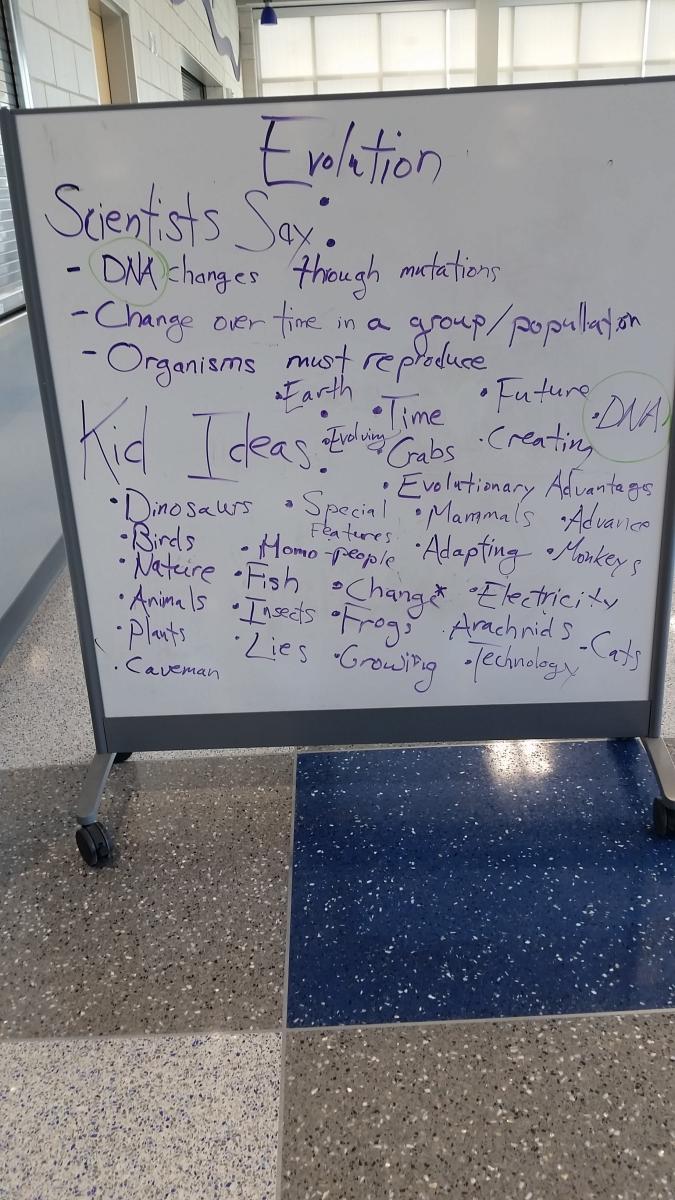 Evolution
Scientists Say:
- DNA changes through mutations
- Change over time in a group/popullation
- Organisms must reproduce
Kid Ideas:
•Earth •Time •Future •DNA
•Evolving •Crabs •Creating
•Evolutionary Advantages
•Dinosaurs •Special Features •Mammals •Advance
•Birds •Homo-people •Adapting •Monkeys
•Nature •Fish •Change* •Electricity
•Animals •Insects •Frogs •Arachnids
•Plants •Lies •Growing •Technology -Cats
•Caveman